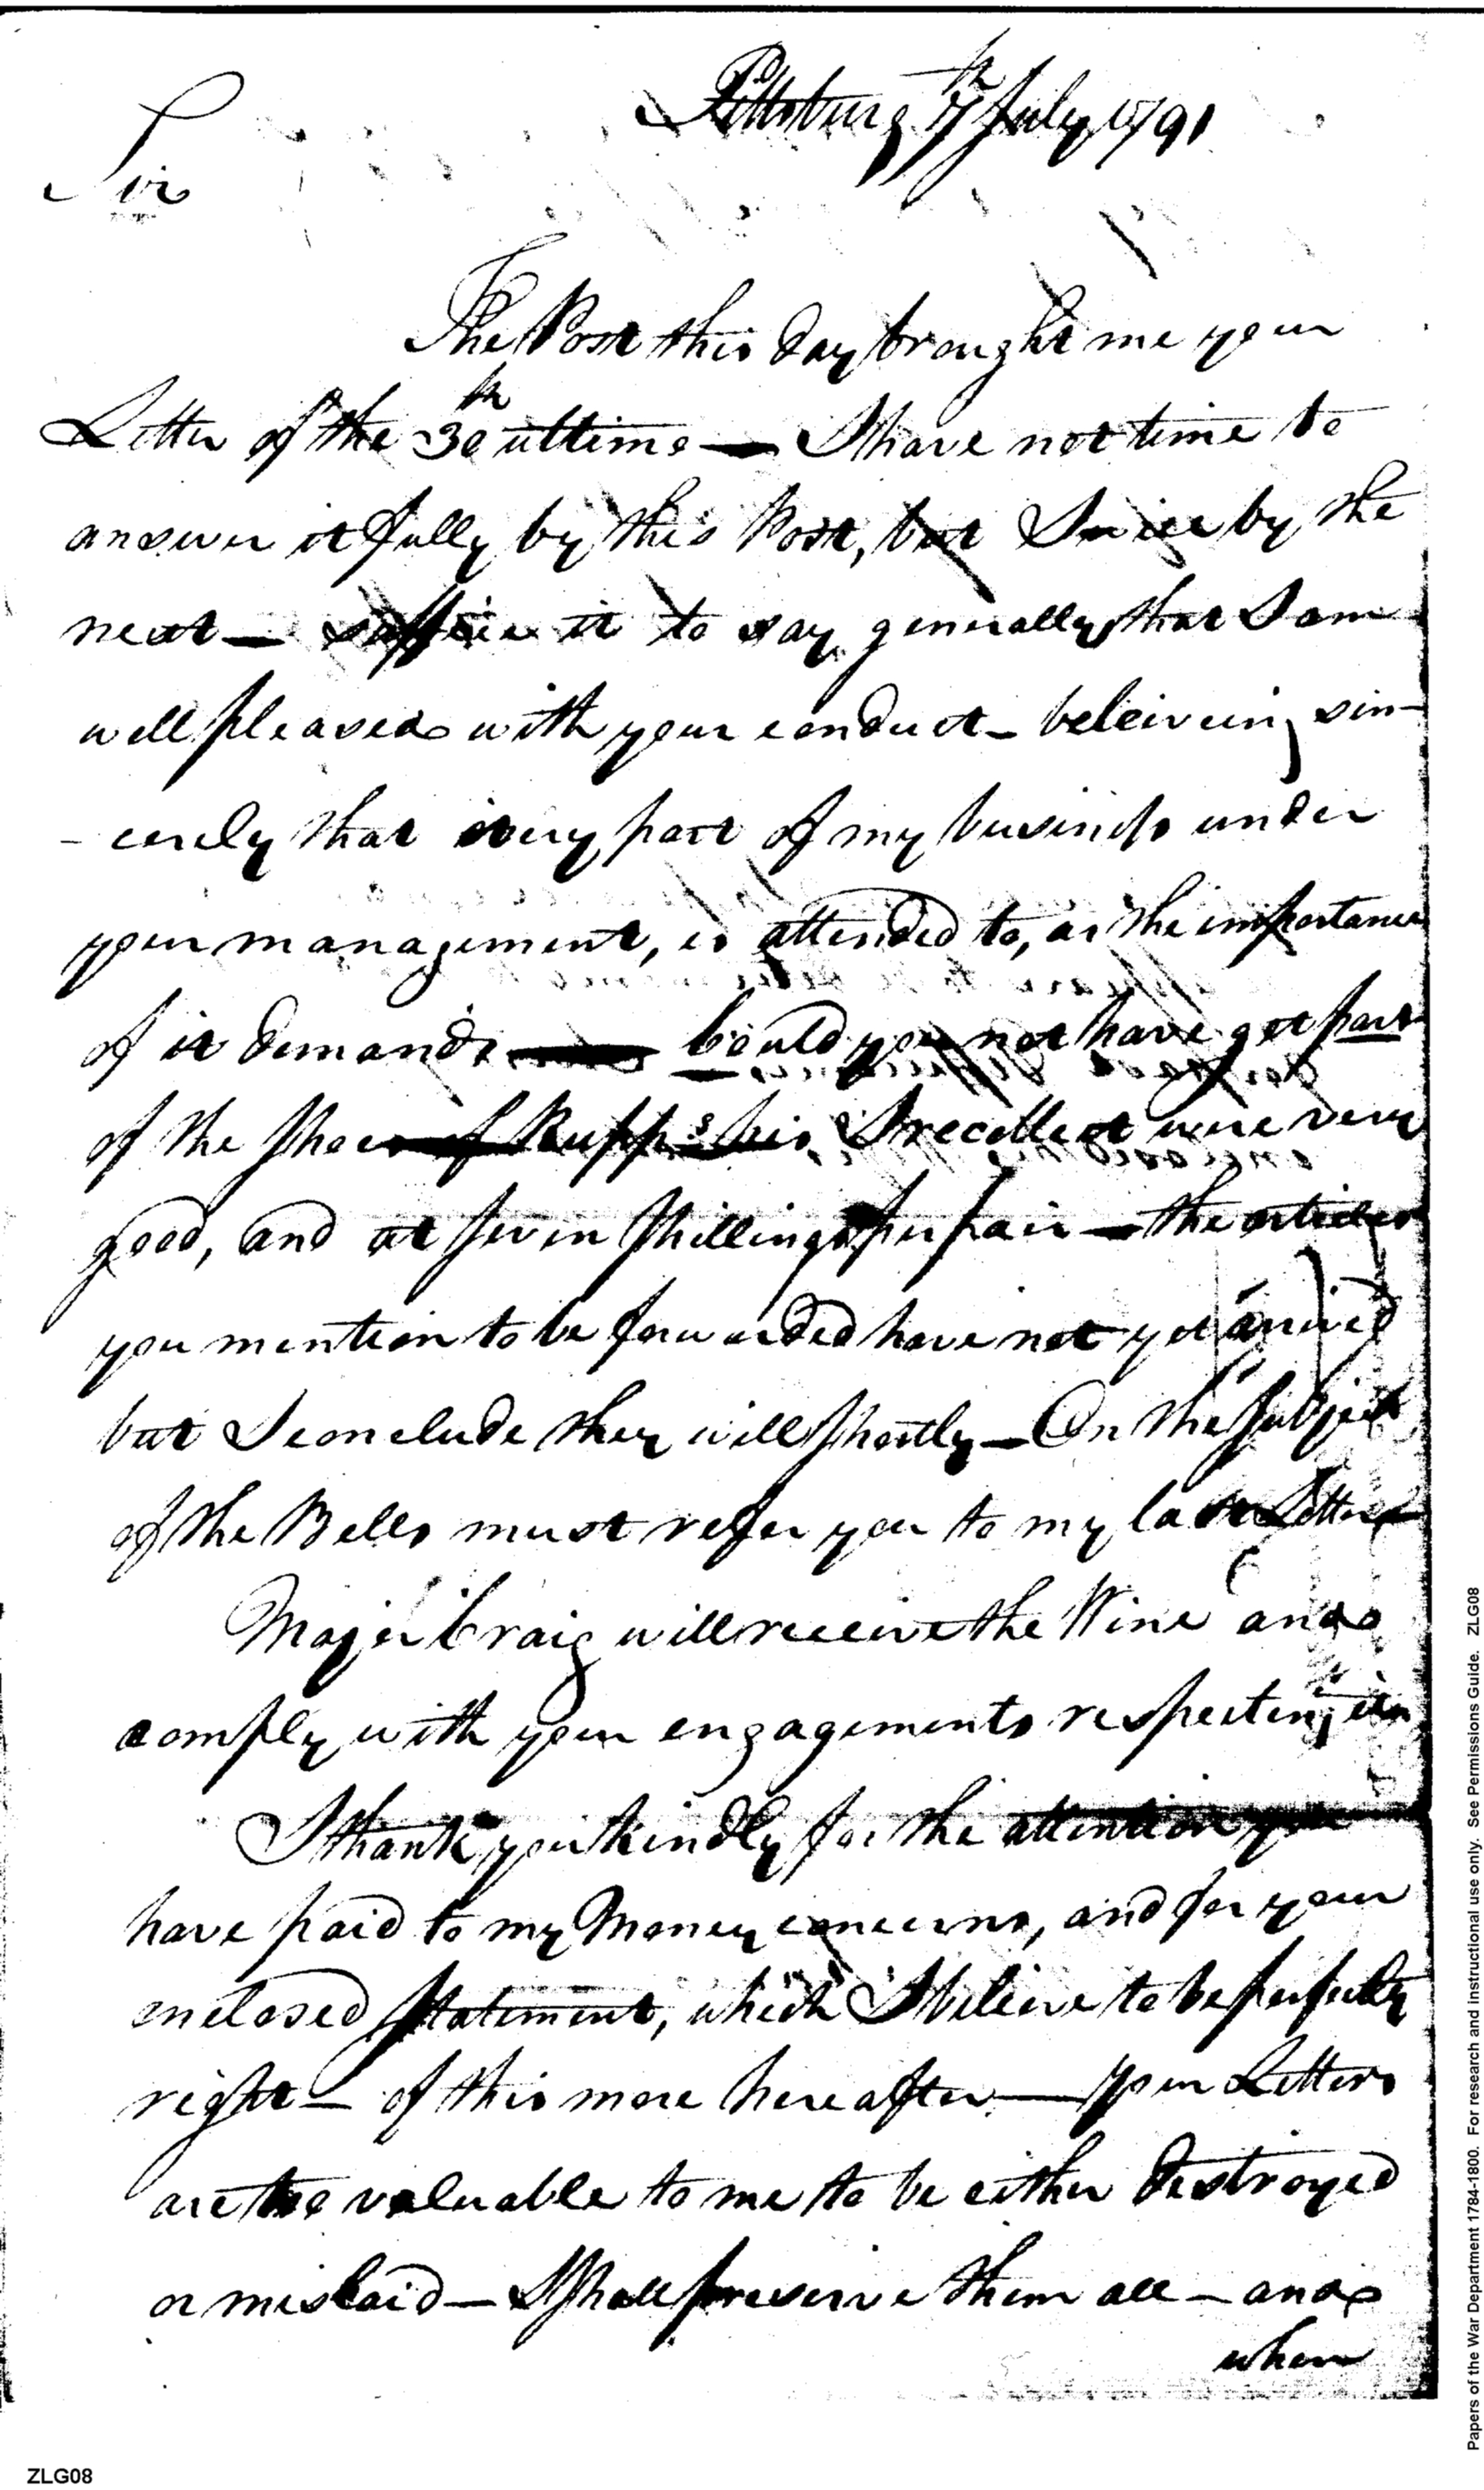 Pittsburg 7th July 1791
Sir
The Post this day brought me your
Letter of the 30th ultimo — I have not time to
answer it fully by this Post, but I will by the
next — suffice it to say generally that I am
well pleased with your conduct — beleiveing sin-
- cerely that every part of my business under
your management, is attended to, as the importance
of it demands — Could you not have got part
of the Shoes of Rupp's his I recollect were very
good, and at Seven Shillings per pair — the articles
you mention to be forwarded have not yet arrived
but I conclude they will Shortly — On the Subject
of the Bells must refer you to my last Letter
Major Craig will receive the Wine and
comply with your engagements respecting it
I thank you kindly for the attention you
have paid to my Money concerns, and for your
enclosed Statement, which I beleive to be perfectly
right — of this more hereafter — Your Letters
are too valuable to me to be either destroyed
or mislaid — I Shall preserve them all — and
when
Papers of the War Department 1784-1800. For research and instructional use only. See Permissions Guide. ZLG08
ZLG08